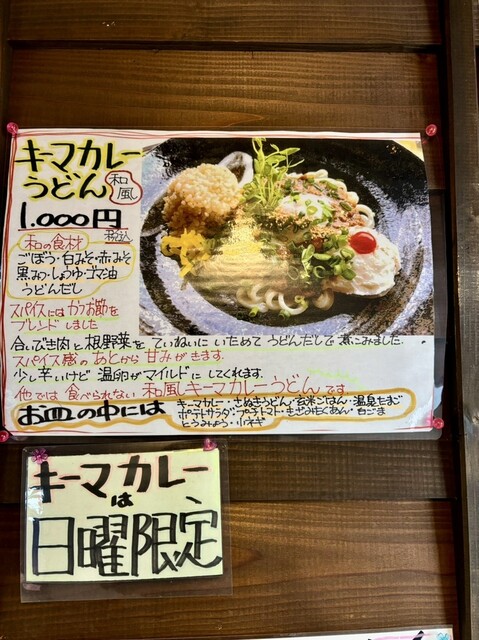 キーマカレー
うどん 和風
1.000円
税込
和の食材
ごぼう・白みそ・赤みそ
黒みつ・しょうゆ・ゴマ油
うどんだし
スパイスにはカツオ節を
ブレンドしました
合いびき肉と根野菜をていねいにいためてうどんだしで煮こみました。
スパイス感のあとから甘みがきます。
少し辛いけど温卵がマイルドにしてくれます。
他では食べられない和風キーマカレーうどんです
お皿の中には
キーマカレー・さぬきうどん・玄米ごはん・温泉たまご
ポテトサラダ・プチトマト・きざみたくあん・白ごま
とうみょう・小ネギ
キーマカレー
は
日曜限定